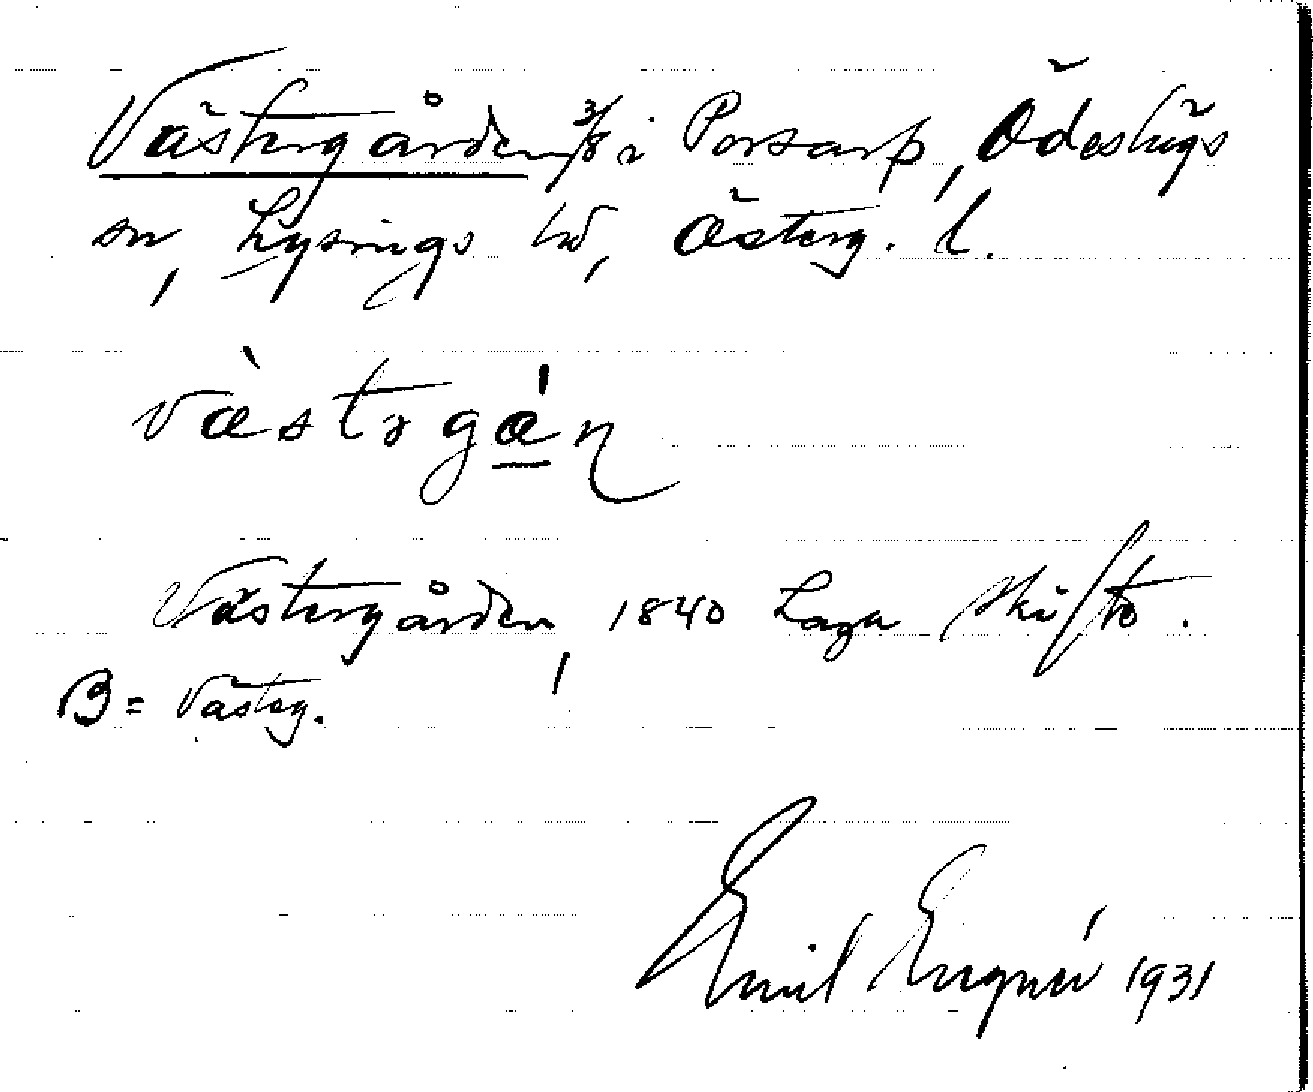 Västergården 3/8 i Porsarp, Ödeshögs
sn, Lysings hd, Österg. l.
västrgán
Västergården, 1840 Laga skifte.
B = Västeg.
Emil Engnér 1931